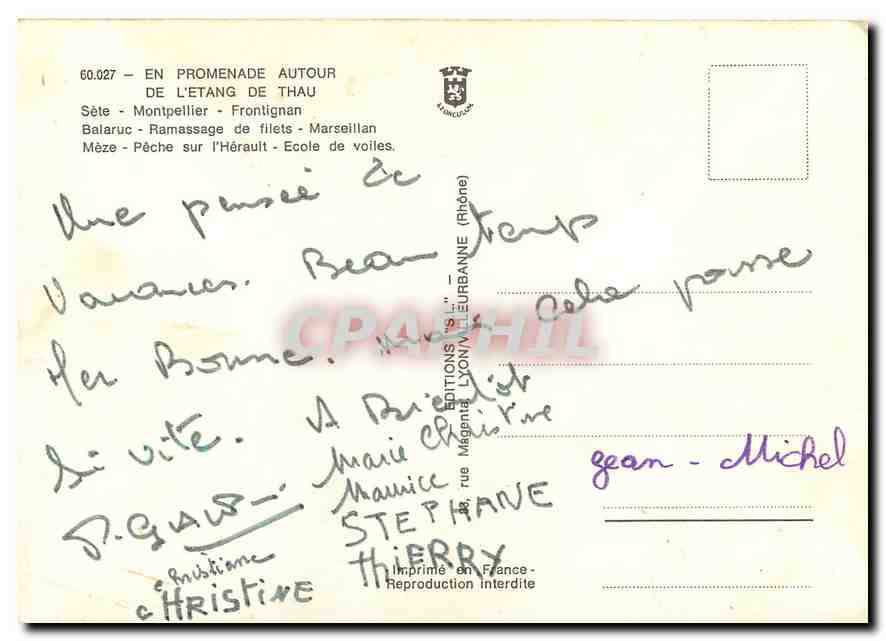 60.027 – EN PROMENADE AUTOUR
DE L'ETANG DE THAU
Sète - Montpellier - Frontignan
Balaruc - Ramassage de filets - Marseillan
Mèze - Pêche sur l'Hérault - Ecole de voiles.
Une pensée de
Vacances. Beau temps
Mer Bonne. mais cela passe
si vite. A Bientôt
Marie Christine
Maurice
STEPHANE
THIERRY
Christiane
CHRISTINE
Jean - Michel
EDITIONS "S.L." –
rue Magenta LYON/VILLEURBANNE (Rhône)
- Imprimé en France -
Reproduction interdite
CPAPHIL